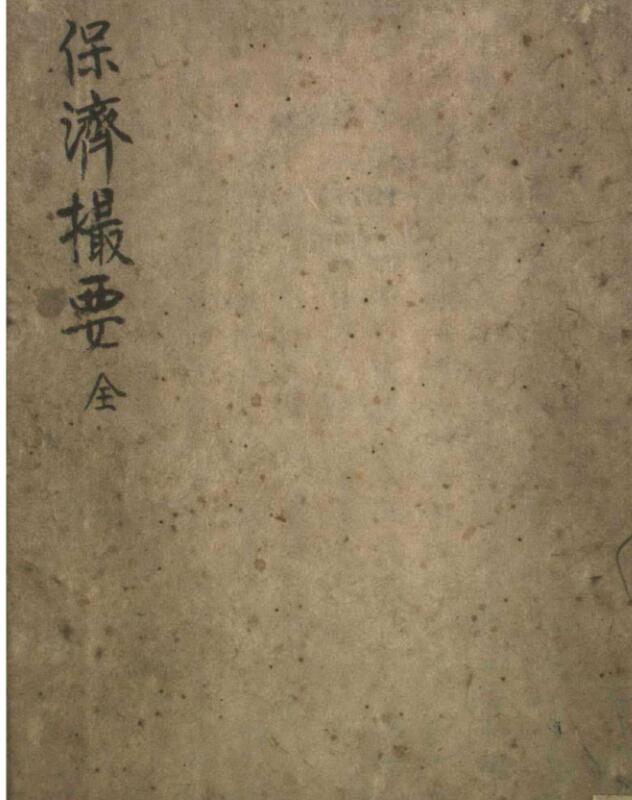 保濟撮要 全